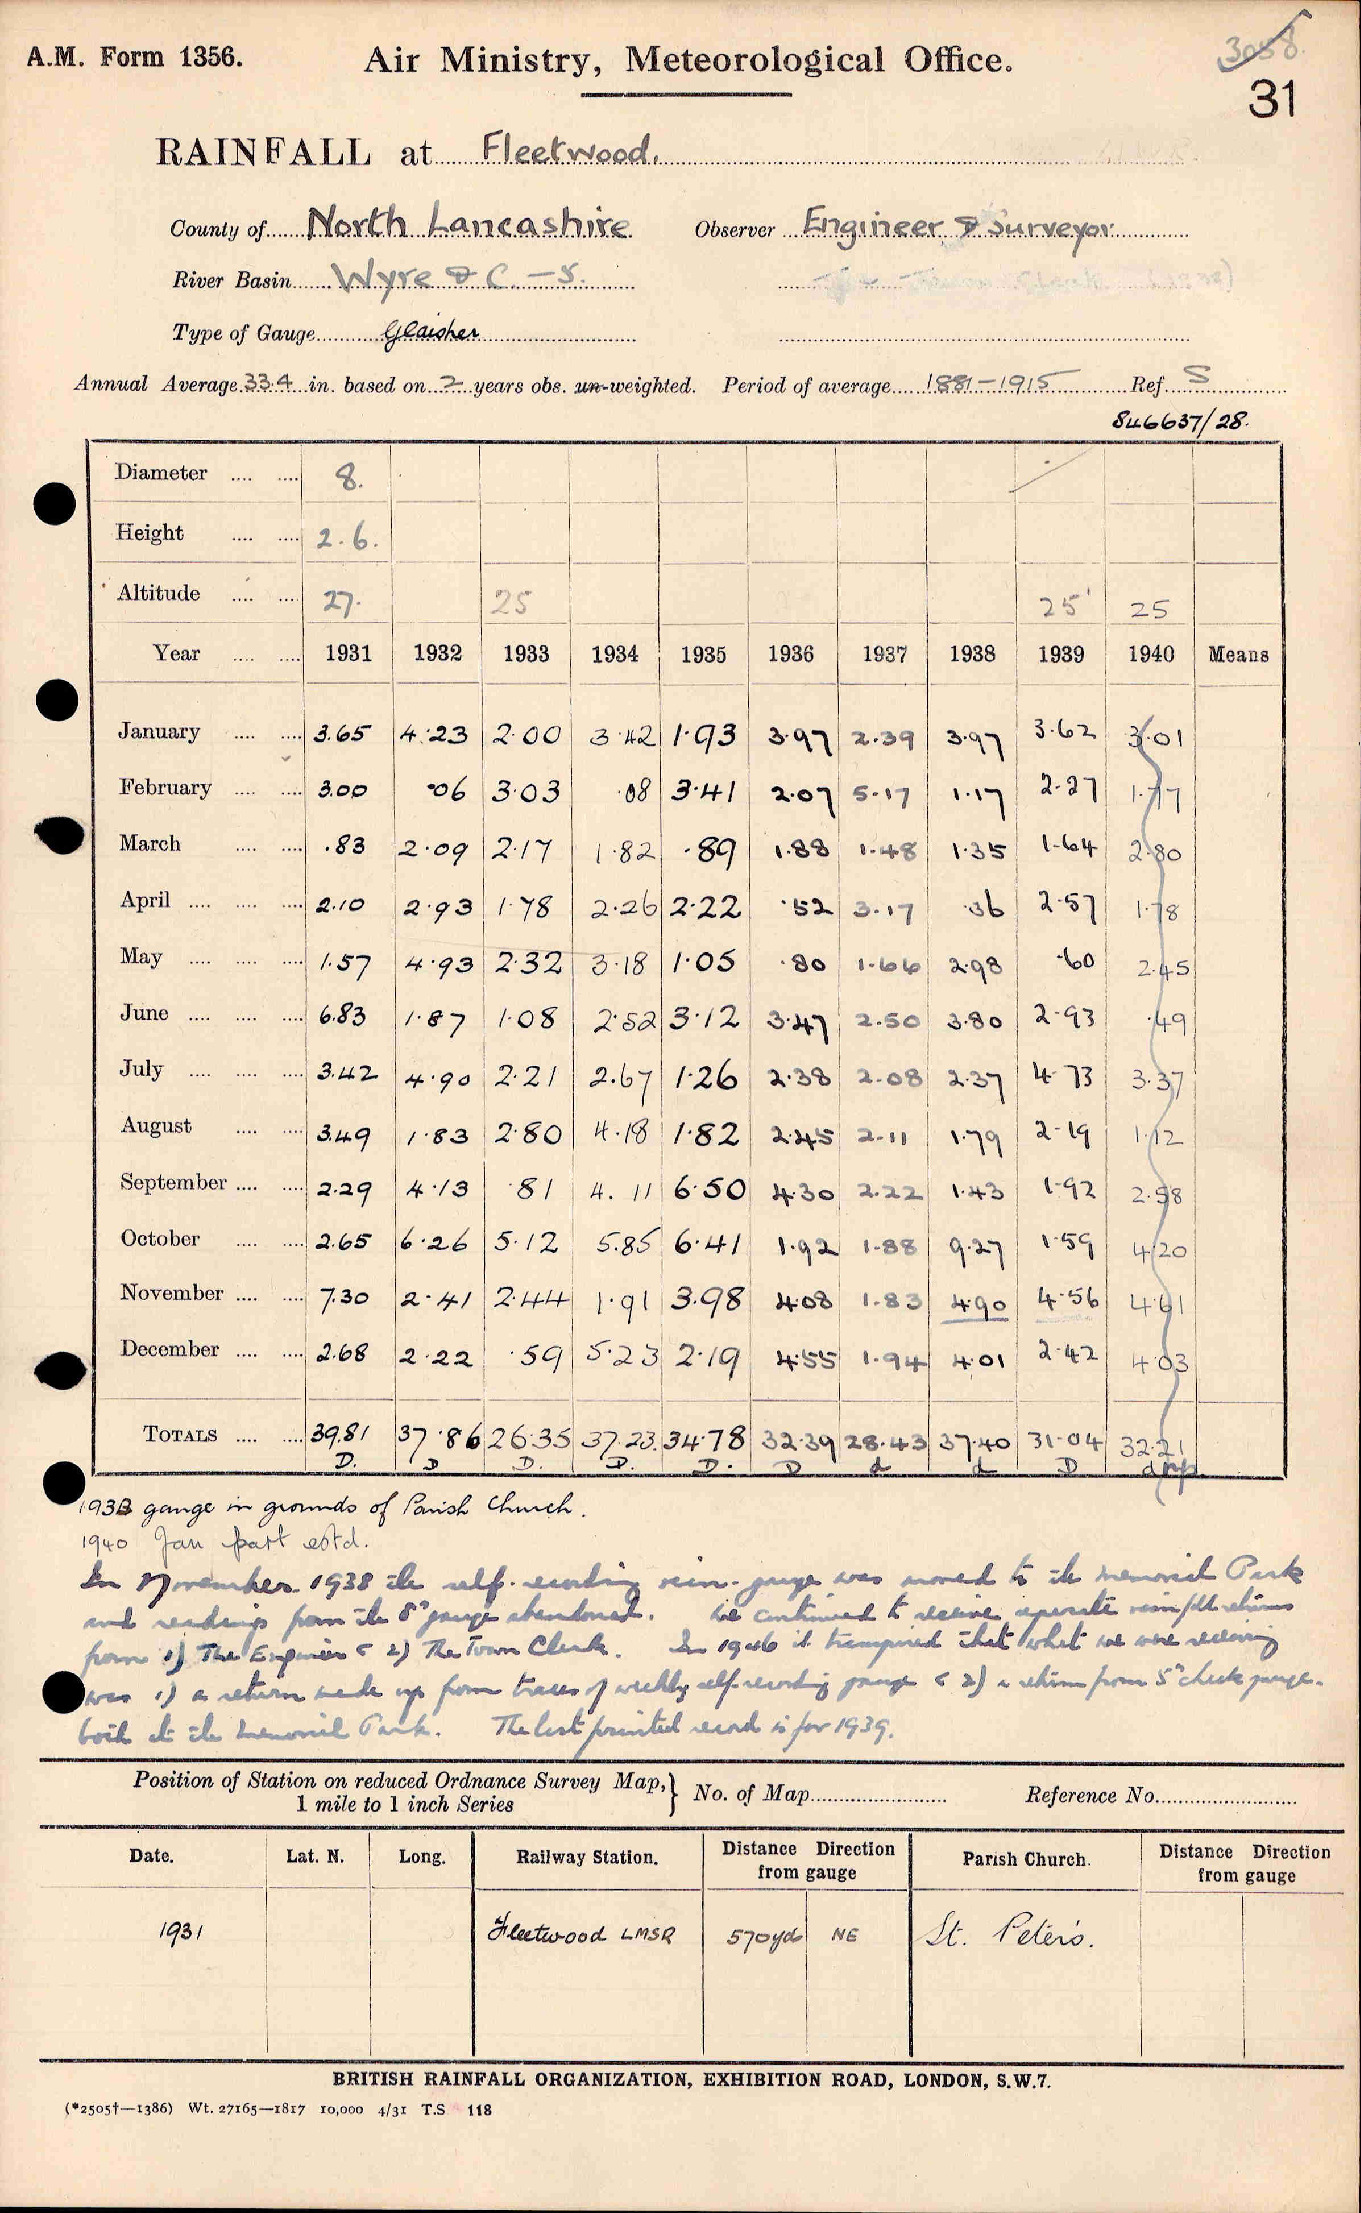 A.M. Form 1356.
Air Ministry, Meteorological Office.
3058.
31
RAINFALL at Fleetwood.
County of North Lancashire Observer Engineer & Surveyor
River Basin Wyre & C. - 5.
Type of Gauge Glaisher
Annual Average 33.4 in. based on 2 years obs. un-weighted. Period of average 1881-1915 Ref. S
846637/28.
Diameter 8.
Height 2.6.
Altitude 27. 25 25' 25
Year 1931 1932 1933 1934 1935 1936 1937 1938 1939 1940 Means
January 3.65 4.23 2.00 3.42 1.93 3.97 2.39 3.97 3.62 3.01
February 3.00 .06 3.03 .08 3.41 2.07 5.17 1.17 2.27 1.77
March .83 2.09 2.17 1.82 .89 1.88 1.48 1.35 1.64 2.80
April 2.10 2.93 1.78 2.26 2.22 .52 3.17 .36 2.57 1.78
May 1.57 4.93 2.32 3.18 1.05 .80 1.66 2.98 .60 2.45
June 6.83 1.87 1.08 2.52 3.12 3.47 2.50 3.80 2.93 .49
July 3.42 4.90 2.21 2.67 1.26 2.38 2.08 2.37 4.73 3.37
August 3.49 1.83 2.80 4.18 1.82 2.45 2.11 1.79 2.19 1.12
September 2.29 4.13 .81 4.11 6.50 4.30 2.22 1.43 1.92 2.58
October 2.65 6.26 5.12 5.85 6.41 1.92 1.88 9.27 1.59 4.20
November 7.30 2.41 2.44 1.91 3.98 4.08 1.83 4.90 4.56 4.61
December 2.68 2.22 .59 5.23 2.19 4.55 1.94 4.01 2.42 4.03
TOTALS 39.81 37.86 26.35 37.23 34.78 32.39 28.43 37.40 31.04 32.21
D. D D. D. D. D d d D d
1933 gauge in grounds of Parish Church.
1940 Jan part estd.
In November 1938 the self-recording rain-gauge was moved to the Memorial Park
and readings from the 8" gauge abandoned. We continued to receive separate rainfall returns
from 1) The Engineer & 2) The Town Clerk. In 1946 it transpired that what we were receiving
was 1) a return made up from traces of weekly self-recording gauge & 2) a return from 5" check gauge.
both at the Memorial Park. The last printed record is for 1939.
Position of Station on reduced Ordnance Survey Map, } No. of Map Reference No.
1 mile to 1 inch Series
Date. Lat. N. Long. Railway Station. Distance Direction from gauge Parish Church. Distance Direction from gauge
1931 Fleetwood LMSR 570yd NE St. Peter's.
BRITISH RAINFALL ORGANIZATION, EXHIBITION ROAD, LONDON, S.W.7.
(*2505†—1386) Wt. 27165—1817 10,000 4/31 T.S 118